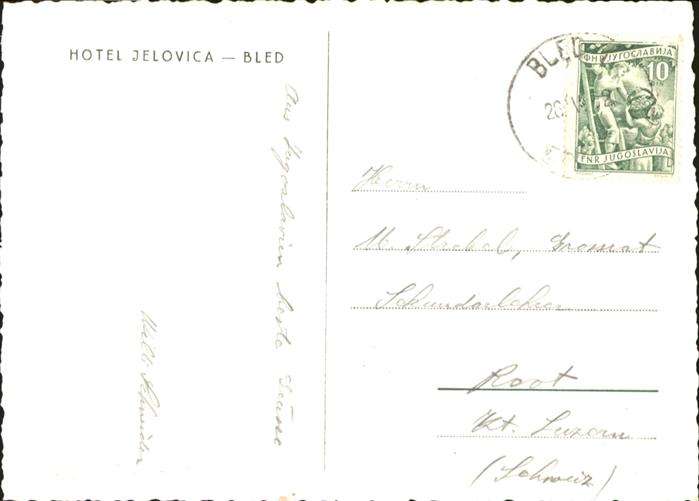 HOTEL JELOVICA — BLED
Aus Jugoslavien beste Grüsse
Willi Schneider
BLED
ФНР ЈУГОСЛАВИЈА
10
FNR JUGOSLAVIJA
Herrn
M. Strebel,
Sekundarlehrer
Root
Kt. Luzern
(Schweiz)